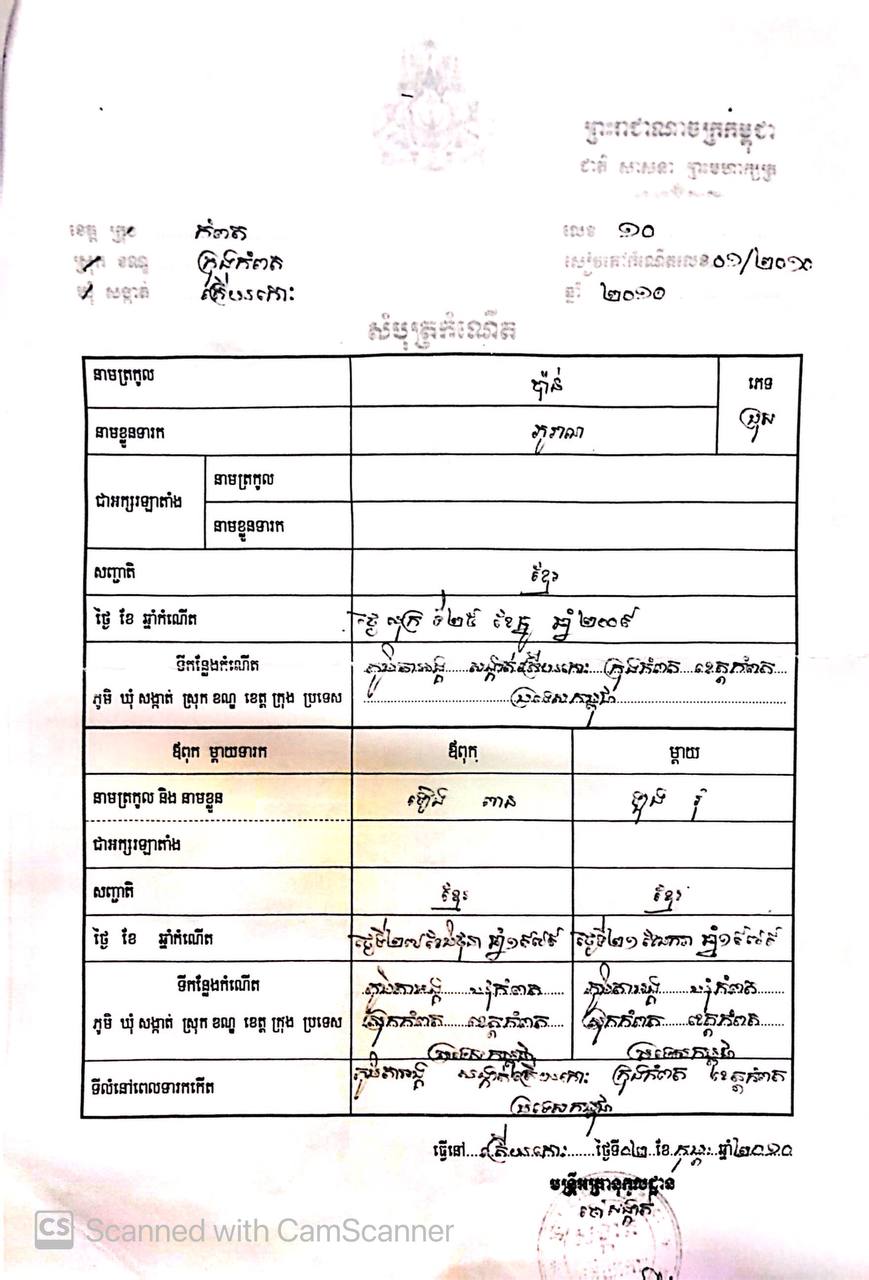 ព្រះរាជាណាចក្រកម្ពុជា
ជាតិ សាសនា ព្រះមហាក្សត្រ
ខេត្ត ក្រុង កំពត
លេខ ១០
ស្រុក ខណ្ឌ ក្រុងកំពត
សៀវភៅកំណើតលេខ ០១/២០១០
ឃុំ សង្កាត់ ត្រើយកោះ
ឆ្នាំ ២០១០
សំបុត្រកំណើត
នាមត្រកូល ប៉ាន់
ភេទ
ប្រុស
នាមខ្លួនទារក
ជាអក្សរឡាតាំង
នាមត្រកូល
នាមខ្លួនទារក
សញ្ជាតិ ខ្មែរ
ថ្ងៃ ខែ ឆ្នាំកំណើត ថ្ងៃ សុក្រ ទី២៥ ខែធ្នូ ឆ្នាំ២០០៩
ទីកន្លែងកំណើត
ភូមិ ឃុំ សង្កាត់ ស្រុក ខណ្ឌ ខេត្ត ក្រុង ប្រទេស
ភូមិតាអង្គ សង្កាត់ត្រើយកោះ ក្រុងកំពត ខេត្តកំពត
ប្រទេសកម្ពុជា
ឪពុក ម្តាយទារក ឪពុក ម្តាយ
នាមត្រកូល និង នាមខ្លួន
ជាអក្សរឡាតាំង
សញ្ជាតិ ខ្មែរ ខ្មែរ
ថ្ងៃ ខែ ឆ្នាំកំណើត ថ្ងៃទី២៧ ឆ្នាំ១៩៧៩ ថ្ងៃទី២១ ឆ្នាំ១៩៧៩
ទីកន្លែងកំណើត
ភូមិ ឃុំ សង្កាត់ ស្រុក ខណ្ឌ ខេត្ត ក្រុង ប្រទេស
ភូមិតាអង្គ ឃុំកំពត
ស្រុកកំពត ខេត្តកំពត
ប្រទេសកម្ពុជា
ភូមិតាអង្គ ឃុំកំពត
ស្រុកកំពត ខេត្តកំពត
ប្រទេសកម្ពុជា
ទីលំនៅពេលទារកកើត ភូមិតាអង្គ សង្កាត់ត្រើយកោះ ក្រុងកំពត ខេត្តកំពត
ប្រទេសកម្ពុជា
ធ្វើនៅ ត្រើយកោះ ថ្ងៃទី០២ ខែ កុម្ភៈ ឆ្នាំ២០១០
មន្ត្រីអត្រានុកូលដ្ឋាន
ចៅសង្កាត់
CS Scanned with CamScanner